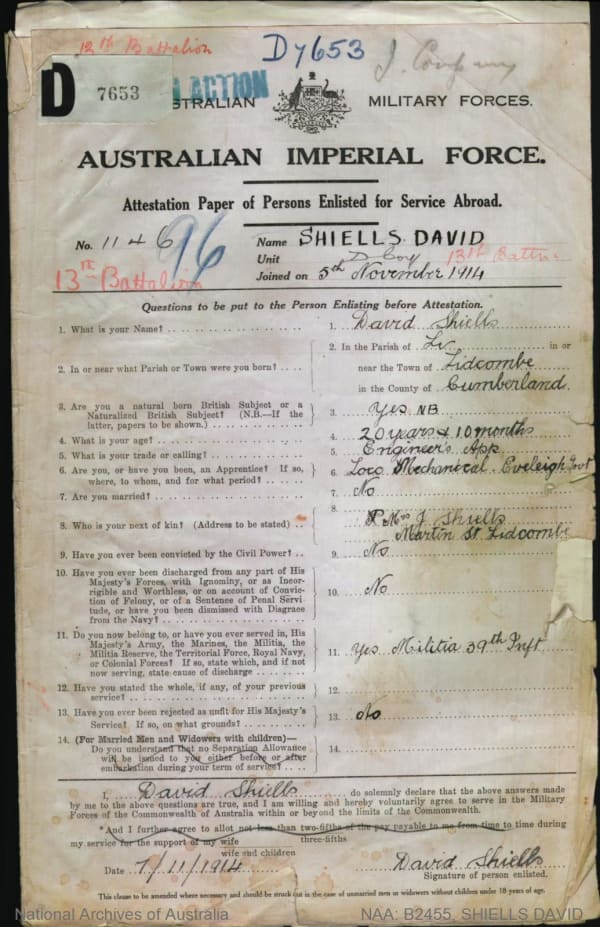 13th Battalion
D7653
J. Company
D 7653
ACTION
AUSTRALIAN MILITARY FORCES.
AUSTRALIAN IMPERIAL FORCE.
Attestation Paper of Persons Enlisted for Service Abroad.
No. 1146
96
Name SHIELLS DAVID
Unit D Coy 13th Battn
Joined on 5th November 1914
13th Battalion
Questions to be put to the Person Enlisting before Attestation.
1. What is your Name? 1. David Shiells
2. In or near what Parish or Town were you born? 2. In the Parish of in or
near the Town of Lidcombe
in the County of Cumberland.
3. Are you a natural born British Subject or a
Naturalized British Subject? (N.B.—If the
latter, papers to be shown.) 3. Yes NB
4. What is your age? 4. 20 years & 10 months
5. What is your trade or calling? 5. Engineer's App
6. Are you, or have you been, an Apprentice? If so,
where, to whom, and for what period? 6. Loco Mechanical. Eveleigh Govt
7. Are you married? 7. No
8. Who is your next of kin? (Address to be stated) 8. Mrs J Shiells
Martin St. Lidcombe
9. Have you ever been convicted by the Civil Power? 9. No
10. Have you ever been discharged from any part of His
Majesty's Forces, with Ignominy, or as Incor-
rigible and Worthless, or on account of Convic-
tion of Felony, or of a Sentence of Penal Servi-
tude, or have you been dismissed with Disgrace
from the Navy? 10. No
11. Do you now belong to, or have you ever served in, His
Majesty's Army, the Marines, the Militia, the
Militia Reserve, the Territorial Force, Royal Navy,
or Colonial Forces? If so, state which, and if not
now serving, state cause of discharge 11. Yes Militia 39th Inft
12. Have you stated the whole, if any, of your previous
service? 12.
13. Have you ever been rejected as unfit for His Majesty's
Service? If so, on what grounds? 13. No
14. (For Married Men and Widowers with children)—
Do you understand that no Separation Allowance
will be issued to you either before or after
embarkation during your term of service? 14.
I, David Shiells do solemnly declare that the above answers made
by me to the above questions are true, and I am willing and hereby voluntarily agree to serve in the Military
Forces of the Commonwealth of Australia within or beyond the limits of the Commonwealth.
*And I further agree to allot not less than two-fifths of the pay payable to me from time to time during
three-fifths
my service for the support of my wife
wife and children
Date 7/11/1914 David Shiells
Signature of person enlisted.
This clause to be amended where necessary and should be struck out in the case of unmarried men or widowers without children under 18 years of age.
National Archives of Australia NAA: B2455, SHIELLS DAVID